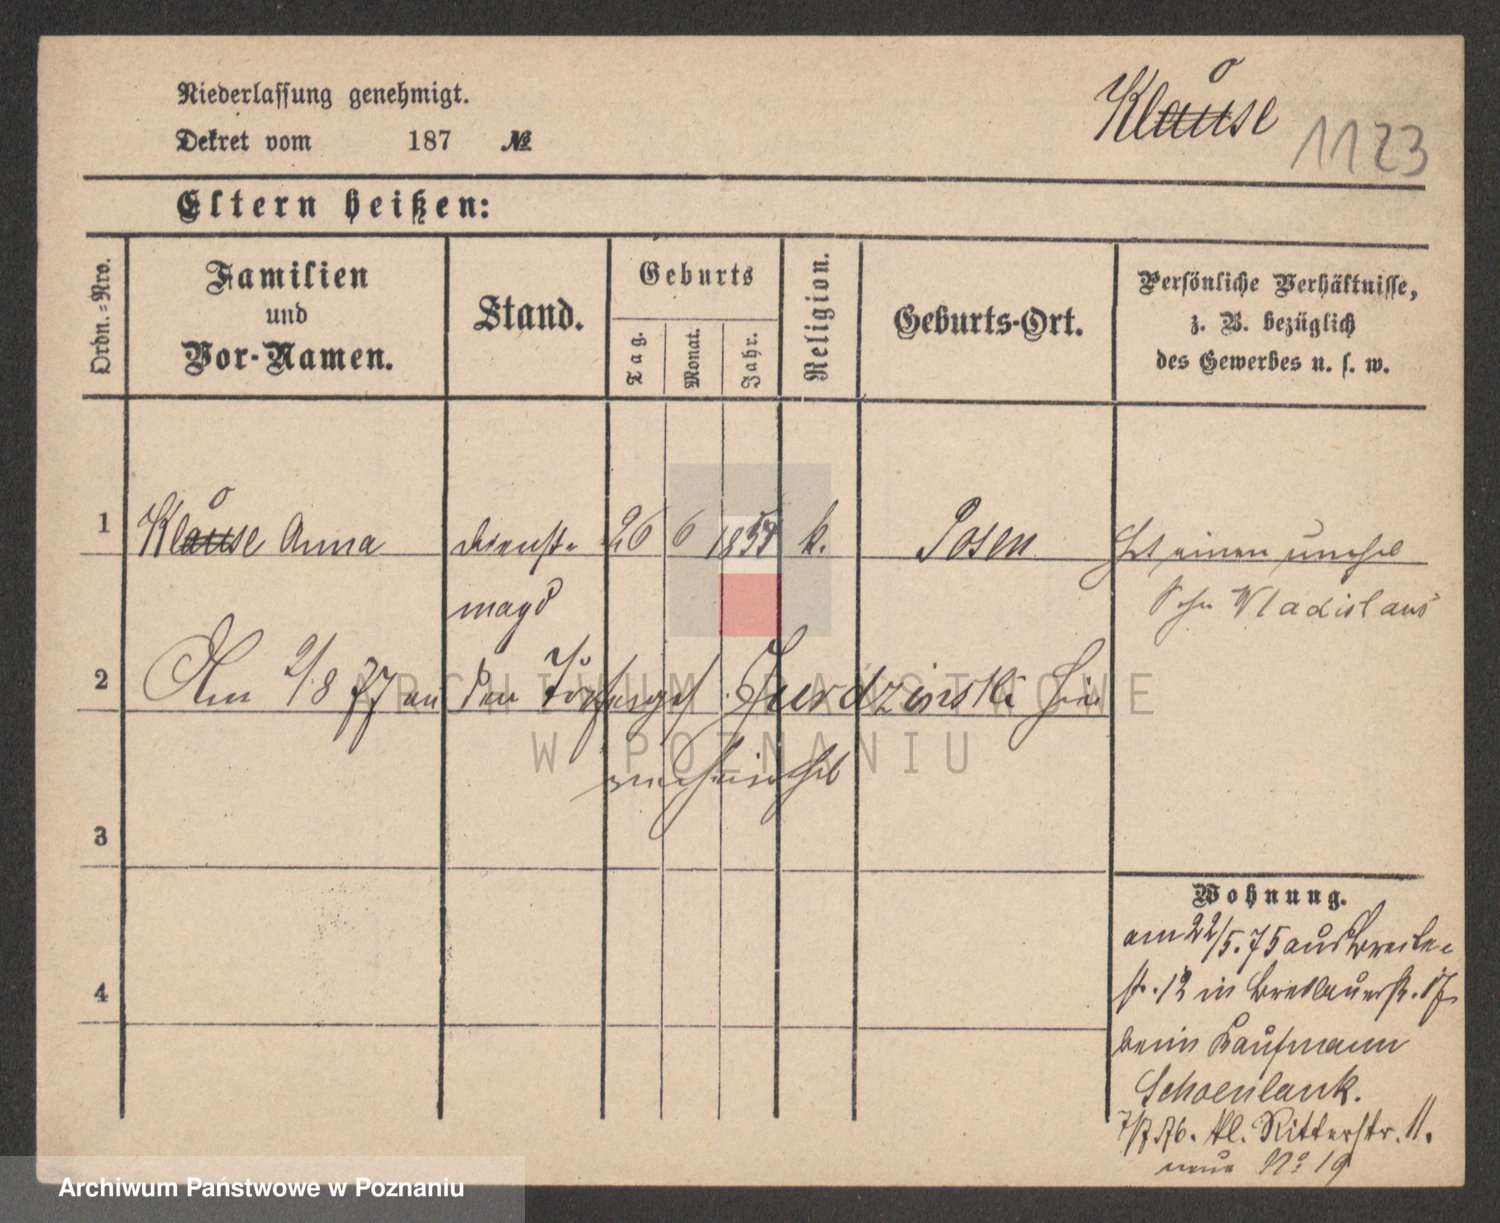 Niederlassung genehmigt.
Dekret vom 187 №
Klause
o
1123
Eltern heißen:
Ordn.-Nro.
Familien
und
Vor-Namen.
Stand.
Geburts
Tag.
Monat.
Jahr.
Religion.
Geburts-Ort.
Persönliche Verhältnisse,
z. B. bezüglich
des Gewerbes u. s. w.
o
1 Klause Anna Dienst- 26 6 185 k. Posen Hat einen unehel
magd Sohn Vladislaus
2 Am 2/8 77 an den Jurdzinski hier
verheirathet
3
4
Wohnung.
am 22/5.75 aus Breite-
str. 12 in Breslauerstr.
beim Kaufmann
Schoenlank.
7/7 76. kl. Ritterstr. 11.
neue No 19
ARCHIWUM PAŃSTWOWE
W POZNANIU
Archiwum Państwowe w Poznaniu